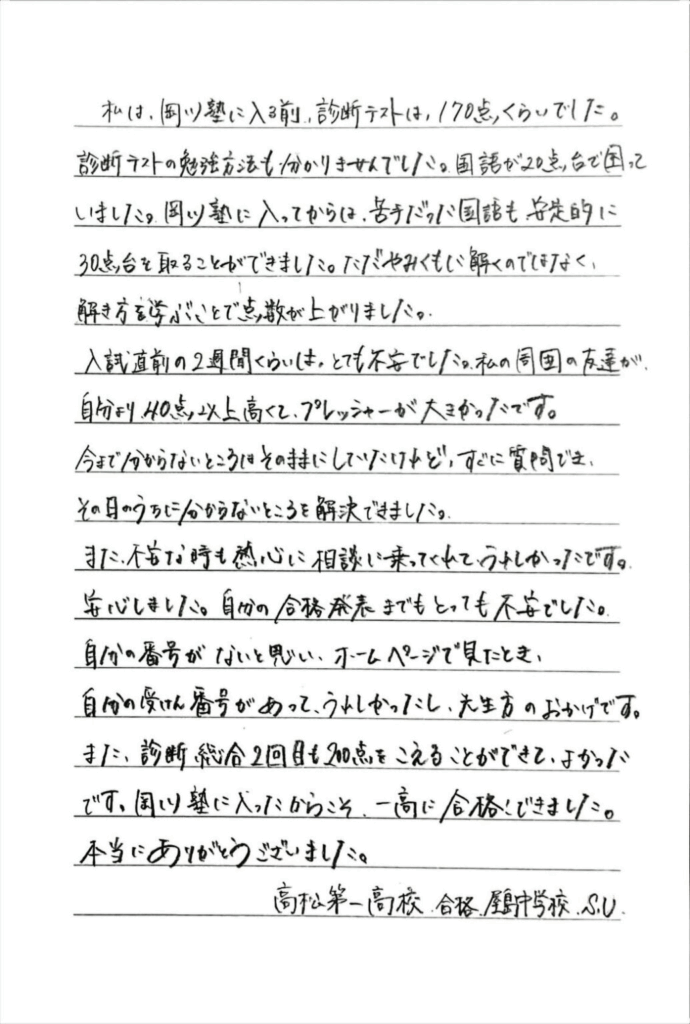 私は、岡川塾に入る前、診断テストは、170点くらいでした。
診断テストの勉強方法も分かりませんでした。国語が20点台で困って
いました。岡川塾に入ってからは、苦手だった国語も安定的に
30点台を取ることができました。ただやみくもに解くのではなく、
解き方を学ぶことで点数が上がりました。
入試直前の2週間くらいは、とても不安でした。私の周囲の友達が、
自分より40点以上高くて、プレッシャーが大きかったです。
今まで分からないところはそのままにしていたけれど、すぐに質問でき、
その日のうちに分からないところを解決できました。
また、不安な時も熱心に相談に乗ってくれて、うれしかったです。
安心しました。自分の合格発表までもとっても不安でした。
自分の番号がないと思い、ホームページで見たとき、
自分の受けん番号があって、うれしかったし、先生方のおかげです。
また、診断総合2回目も200点をこえることができて、よかった
です。岡川塾に入ったからこそ、一高に合格できました。
本当にありがとうございました。
高松第一高校 合格 屋島中学校 S.U.